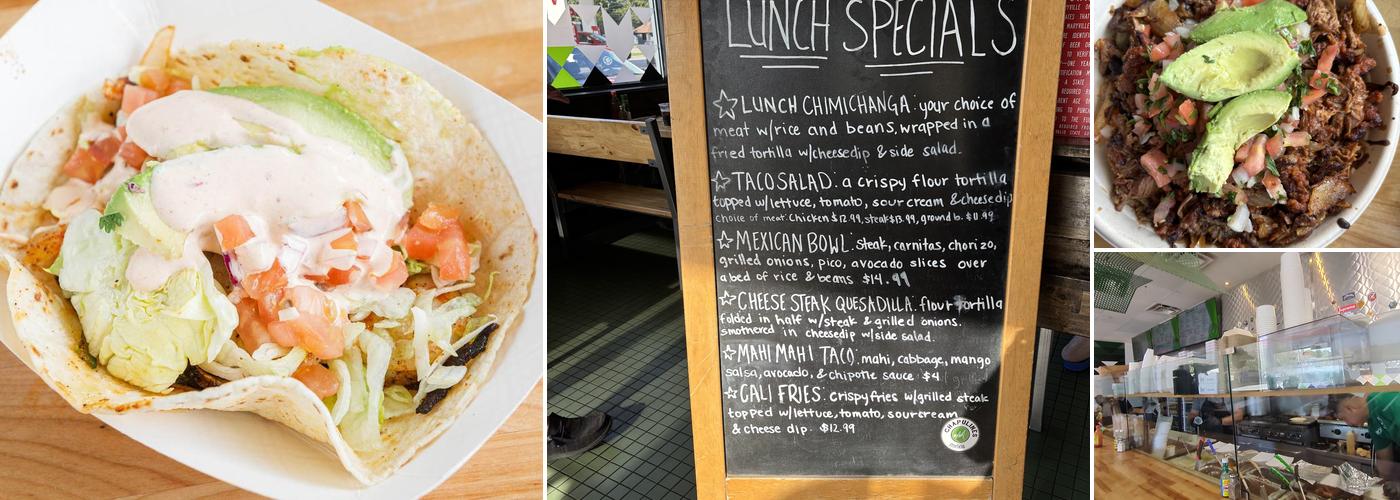 LUNCH SPECIALS
☆ LUNCH CHIMICHANGA: your choice of
meat w/rice and beans, wrapped in a
fried tortilla w/cheesedip & side salad.
☆ TACO SALAD: a crispy flour tortilla
topped w/lettuce, tomato, sour cream & cheese dip
choice of meat: Chicken $12.99, steak $13.99, ground b. $11.99
☆ MEXICAN BOWL: steak, carnitas, chorizo,
grilled onions, pico, avocado slices over
a bed of rice & beans $14.99
☆ CHEESE STEAK QUESADILLA: flour tortilla
folded in half w/steak & grilled onions.
smothered in cheesedip w/side salad.
☆ MAHI MAHI TACO: mahi, cabbage, mango
salsa, avocado, & chipotle sauce $4
☆ CALI FRIES: crispy fries w/grilled steak
topped w/lettuce, tomato, sour cream
& cheese dip. $12.99
CHAPULINES